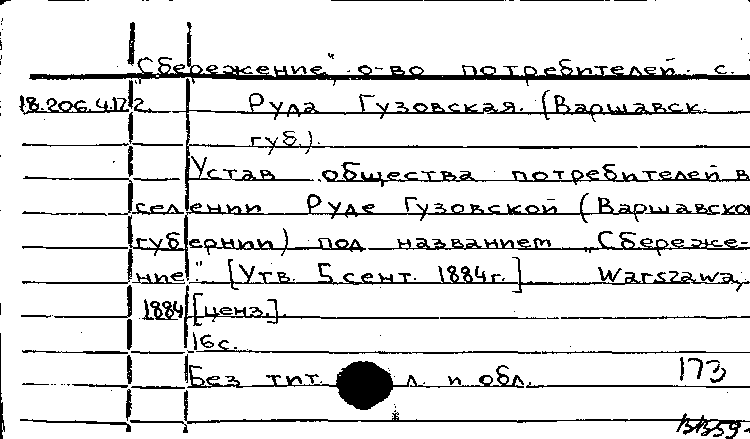 "Сбережение", о-во потребителей с.
18.206.4.172. Руда Гузовская. (Варшавск.
губ.).
Устав общества потребителей в
селении Руде Гузовской (Варшавско
губернии) под названием „Сбереже-
ние". [Утв. 5 сент. 1884г.] Warszawa,
1884 [ценз.].
16с.
Без тит. л. и обл. 173